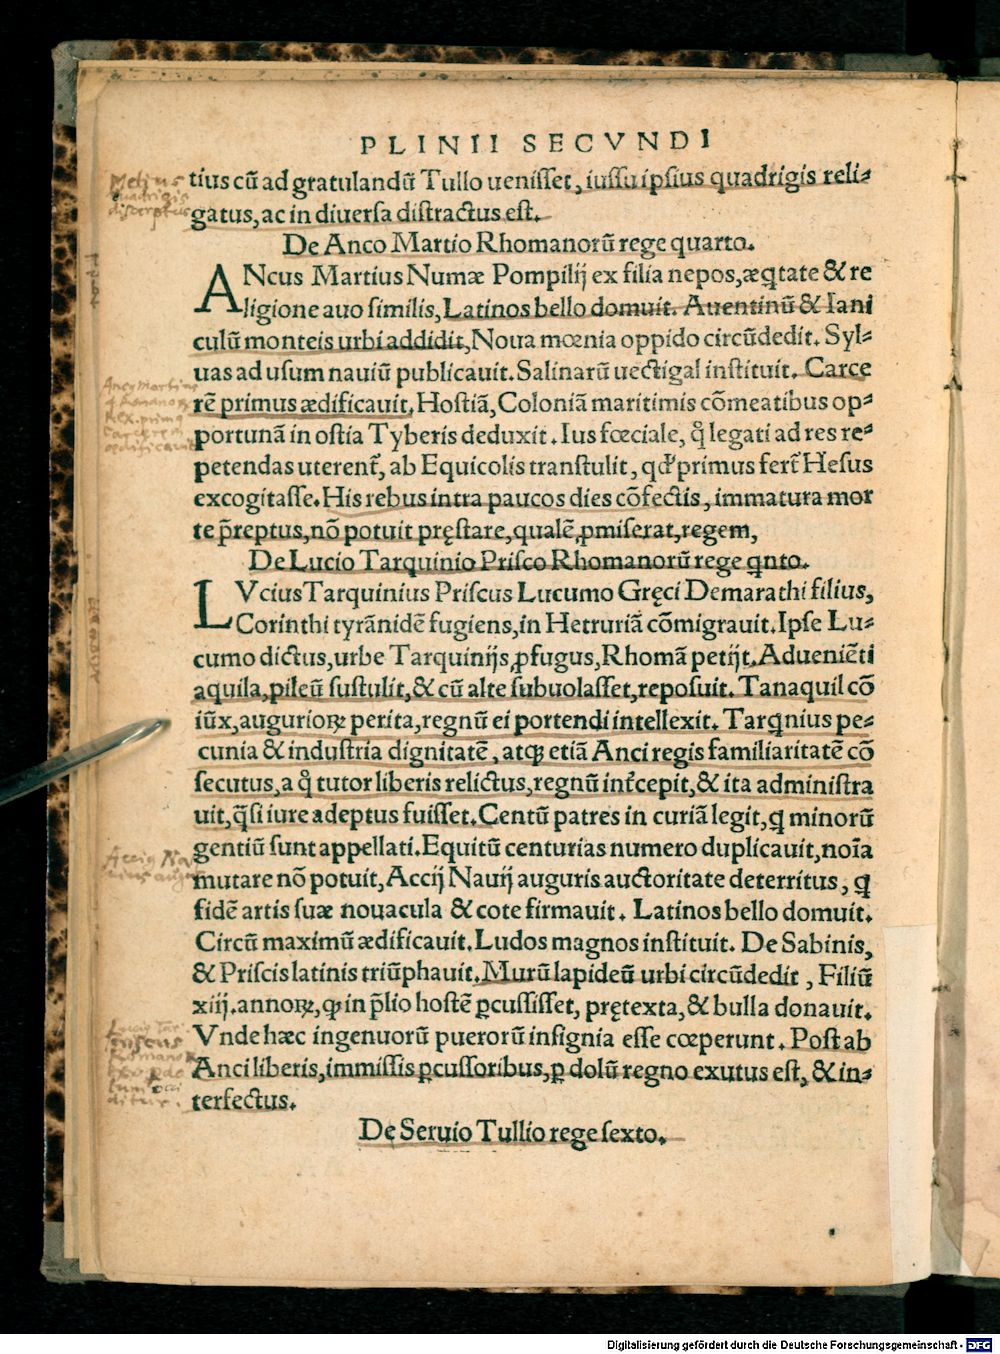 PLINII SECVNDI
tius cū ad gratulandū Tullo uenisset, iussu ipsius quadrigis reli⸗
gatus, ac in diuersa distractus est.
De Anco Martio Rhomanorū rege quarto.
ANcus Martius Numæ Pompilij ex filia nepos, æq̇tate & re
ligione auo similis, Latinos bello domuit. Auentinū & Iani
culū monteis urbi addidit, Noua mœnia oppido circūdedit. Syl⸗
uas ad usum nauiū publicauit. Salinarū uectigal instituit. Carce
rē primus ædificauit. Hostiā, Coloniā maritimis cōmeatibus op⸗
portunā in ostia Tyberis deduxit. Ius fœciale, q̇ legati ad res re⸗
petendas uterent᷑, ab Equicolis transtulit, qd̕ primus fert᷑ Hesus
excogitasse. His rebus intra paucos dies cōfectis, immatura mor
te p̄reptus, nō potuit pręstare, qualē ꝓmiserat, regem,
De Lucio Tarquinio Prisco Rhomanorū rege qnto.
LVcius Tarquinius Priscus Lucumo Gręci Demarathi filius,
Corinthi tyrānidē fugiens, in Hetruriā cōmigrauit. Ipse Lu⸗
cumo dictus, urbe Tarquinijs, ꝓfugus, Rhomā petijt. Adueniēti
aquila, pileū sustulit, & cū alte subuolasset, reposuit. Tanaquil cō
iūx, auguriorꝝ perita, regnū ei portendi intellexit. Tarqnius pe⸗
cunia & industria dignitatē, atqꝫ etiā Anci regis familiaritatē cō
secutus, a q̇ tutor liberis relictus, regnū int᷑cepit, & ita administra
uit, q̄si iure adeptus fuisset. Centū patres in curiā legit, q minorū
gentiū sunt appellati. Equitū centurias numero duplicauit, noīa
mutare nō potuit, Accij Nauij auguris auctoritate deterritus, q
fidē artis suæ nouacula & cote firmauit. Latinos bello domuit.
Circū maximū ædificauit. Ludos magnos instituit. De Sabinis,
& Priscis latinis triūphauit. Murū lapideū urbi circūdedit, Filiū
xiij. annoꝝ, qꝫ in p̄lio hostē ꝑcussisset, prętexta, & bulla donauit.
Vnde hæc ingenuorū puerorū insignia esse cœperunt. Post ab
Anci liberis, immissis ꝑcussoribus, ꝑ dolū regno exutus est, & in⸗
terfectus.
De Seruio Tullio rege sexto.
Metius
quadrigis
discerptus
Ancus Martius
Rex primus
carcerem
ædificauit
Digitalisierung gefördert durch die Deutsche Forschungsgemeinschaft - DFG